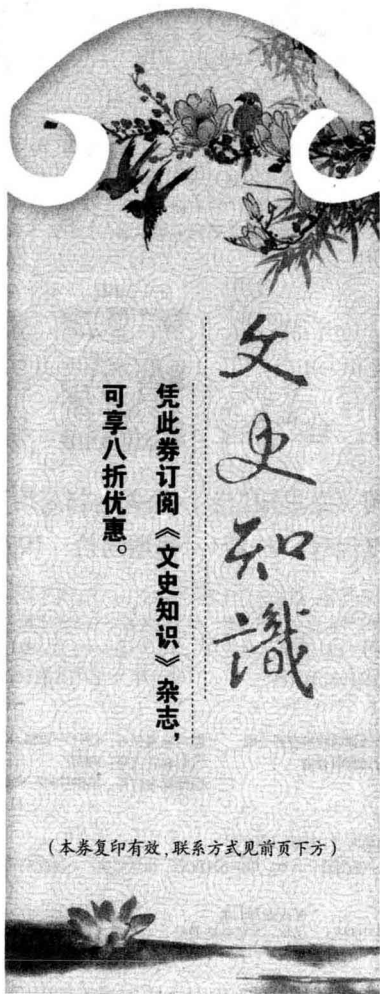 文史知識
凭此券订阅《文史知识》杂志，
可享八折优惠。
（本券复印有效，联系方式见前页下方）